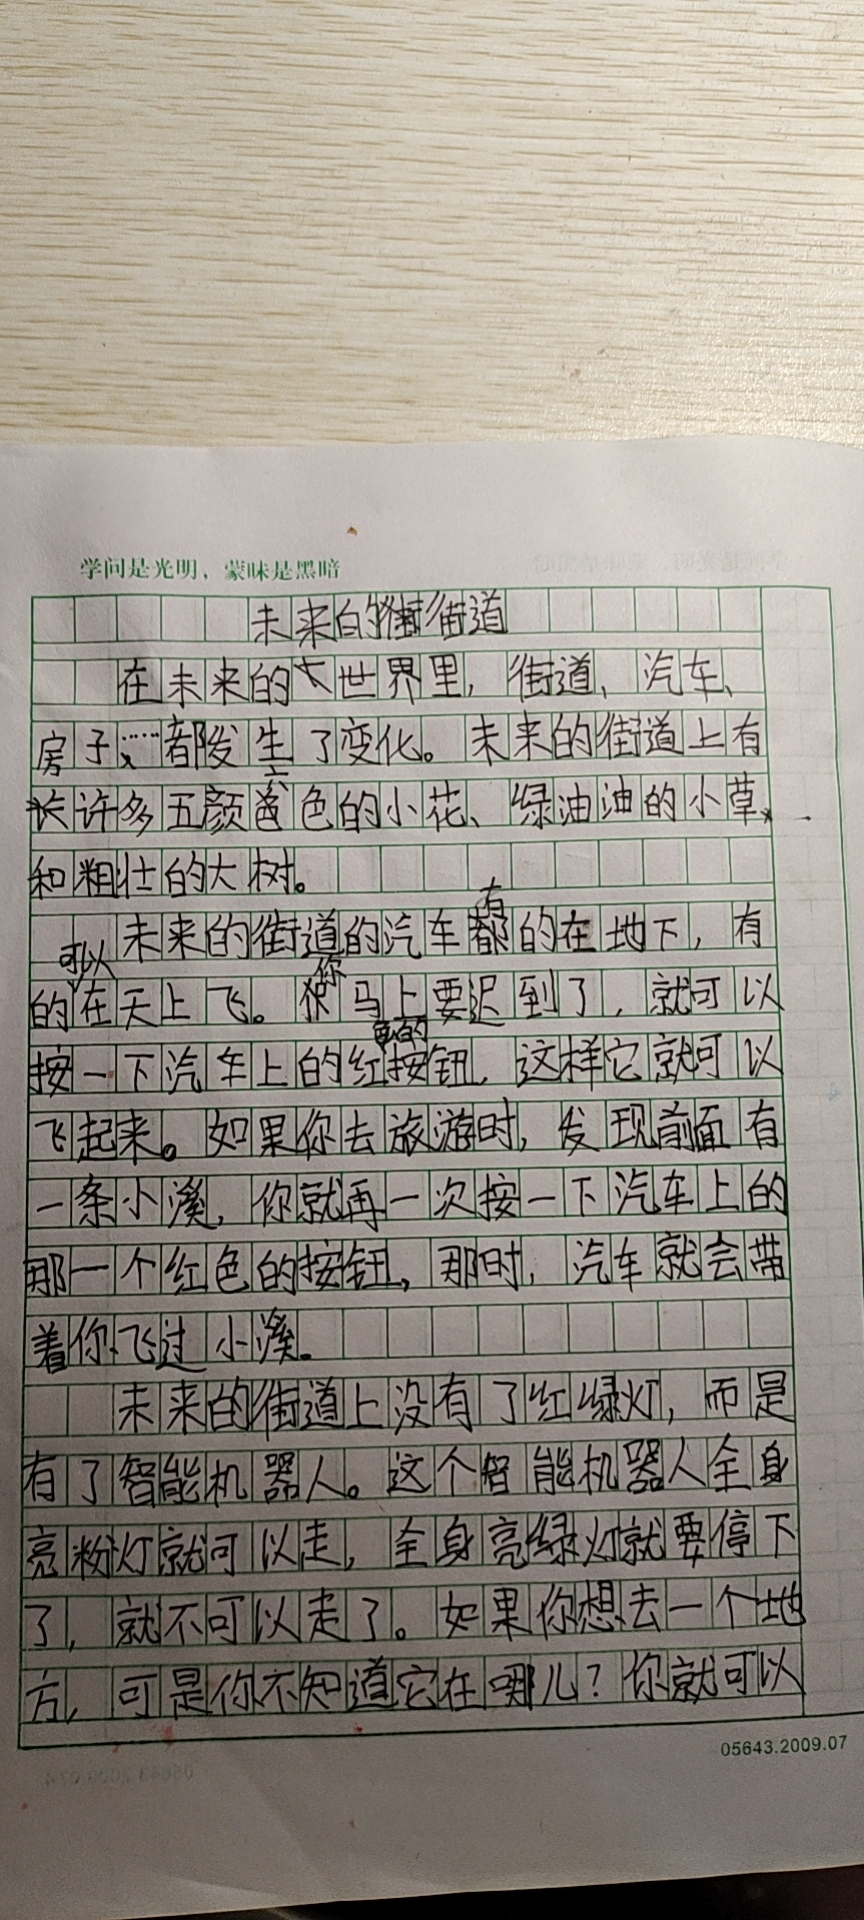 学问是光明，蒙昧是黑暗
未来的街道
在未来的大世界里，街道、汽车、
房子……都发生了变化。未来的街道上有
许多五颜六色的小花、绿油油的小草
和粗壮的大树。
未来的街道的汽车有的在地下，有
的可以在天上飞。你马上要迟到了，就可以
按一下汽车上的红色的按钮，这样它就可以
飞起来。如果你去旅游时，发现前面有
一条小溪，你就再一次按一下汽车上的
那一个红色的按钮，那时，汽车就会带
着你飞过小溪。
未来的街道上没有了红绿灯，而是
有了智能机器人。这个智能机器人全身
亮粉灯就可以走，全身亮绿灯就要停下
了，就不可以走了。如果你想去一个地
方，可是你不知道它在哪儿？你就可以
05643.2009.07